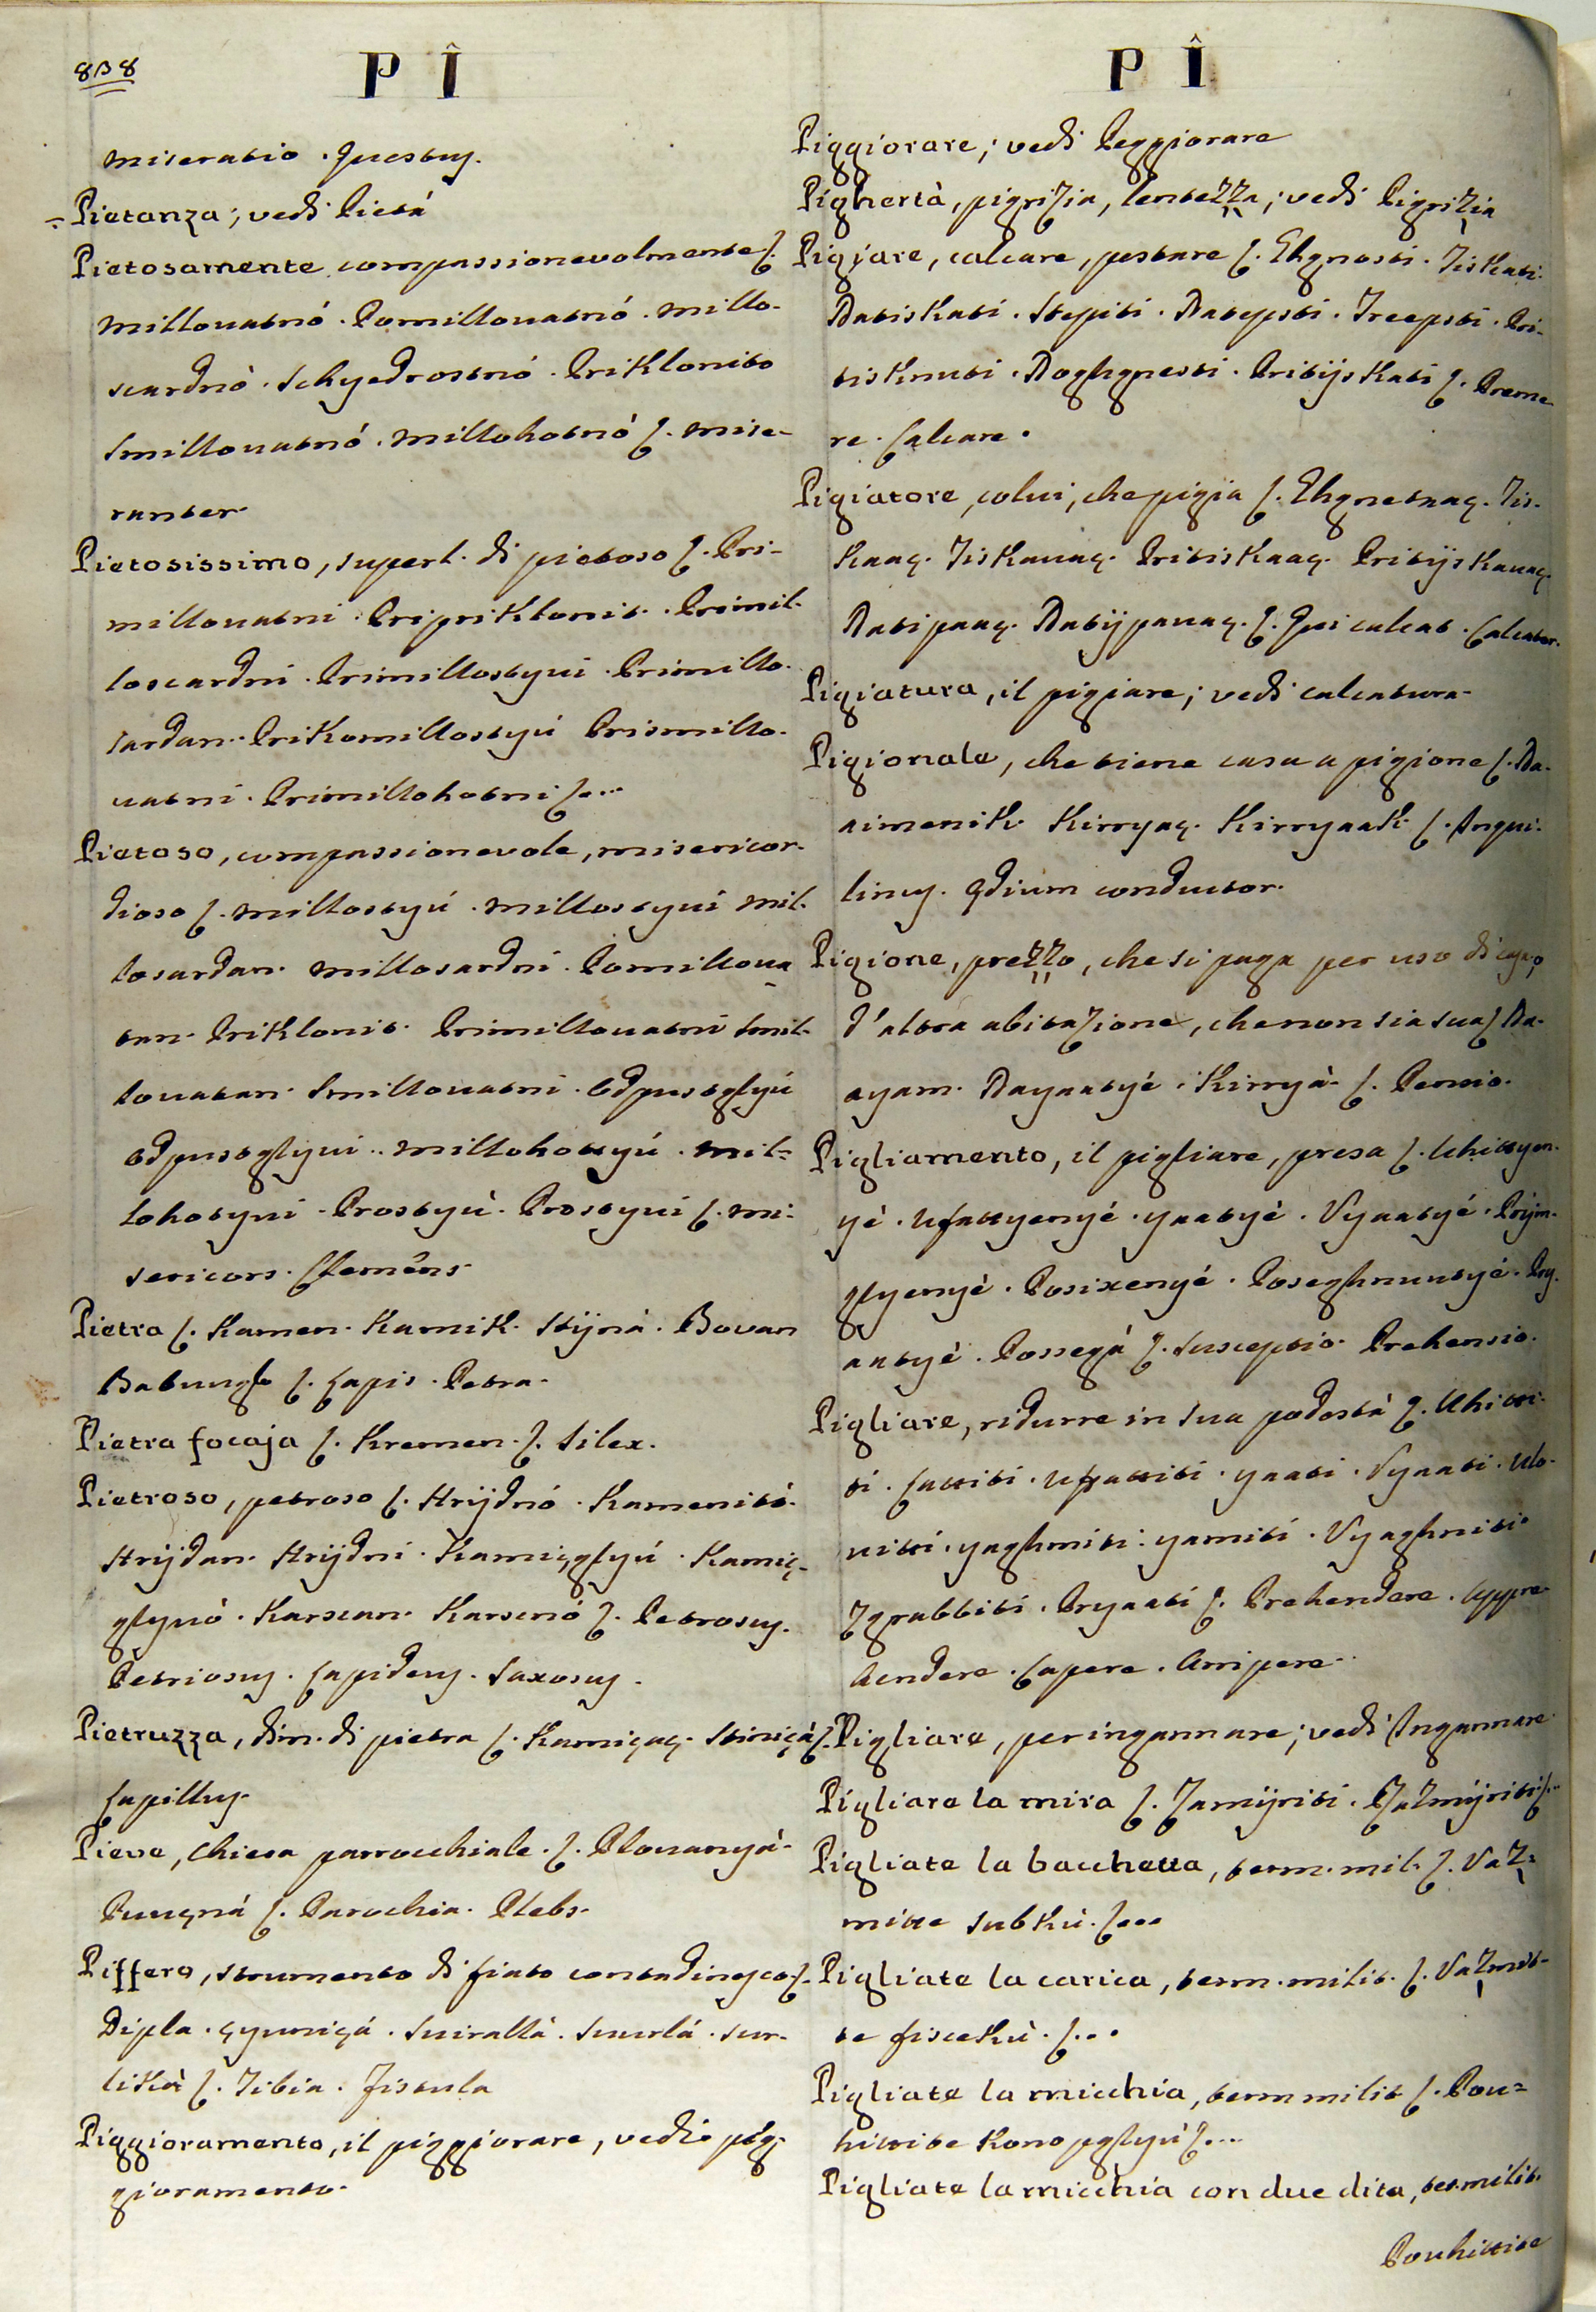 838
P Î
miseratio. Questus.
Pietanza; vedi Pietá
Pietosamente compassionevolmente ſ.
Millouatnó. Pomillouatnó. Millo-
scardnó. Schyedrostnó. Priklonito
Smillouatnó. Millohotnó ſ. Mise-
ranter.
Pietosissimo, superl. di pietoso ſ. Pri-
millouatni. Pripriklonit. Primil-
loscardni. Primillostyui. Primillo-
sardan. Prikomillostyú Prismillo-
uatni. Primillohotni ſ...
Pietoso, compassionevole, misericor-
dioso ſ. Millostyú. Millostyui Mil-
losardan. Millosardni. Pomilloua
tan. Priklonit. Primillouatni Smil-
louatan. Smillouatni. Odpustglyú
Odpustglyui. Millohottyú. Mil-
lohotyui. Prostyú. Prostyui ſ. Mi-
sericors. Clemens.
Pietra ſ. Kamen. Kamik. Stijná. Bovan
Batungl ſ. Lapis. Petra.
Pietra focaja ſ. Kremen. ſ. Silex.
Pietroso, petroso ſ. Hrijdnó. Kamenitó.
Hrijdan. Hrijdni. Kamiçglyú. Kamiç-
glynó. Karscan. Karscnó ſ. Petrosus.
Petriosus. Lapideus. Saxosus.
Pietruzza, dim. di pietra ſ. Kamiçaç. Stiniçá ſ.
Lapillus.
Pieve, Chiesa parrocchiale. ſ. Plouanyá.
Puuçná ſ. Parochia. Plebs.
Piffero, strumento di fiato contadinesco ſ.
Dipla. çyuniçá. Suirallá. Suurlá. Sur-
liká ſ. Tibia. Fistula
Piggioramento, il piggiorare, vedi peg-
gioramento.
P Î
Piggiorare; vedi Peggiorare
Pighertà, pigrizia, lentezza; vedi Pigrizia
Pigjare, calcare, pestare ſ. Ehgnosti. Tiskati.
Natiskati. Stepiti. Natepsti. Treepsti. Pri-
tisknuti. Noghgnesti. Pritijskati ſ. Preme-
re. Calcare.
Pigiatore, colui, che pigia ſ. Ehgnetnaç. Tis-
kaaç. Tiskauaç. Pritiskaaç. Pritijskauaç.
Natipaaç. Natijpauaç. ſ. Qui calcat. Calcator.
Pigiatura, il pigjare; vedi calcatura.
Pigionale, che tiene casa a pigione ſ. Na-
aimenik. Kirryaç. Kirryaak ſ. Inqui-
linus. Ædium conductor.
Pigione, prezzo, che si paga per uso di casa, o
d'altra abitazione, che non sia sua ſ Na-
ayam. Nayaatyé. Kirryá. ſ. Pensio.
Pigliamento, il pigliare, presa ſ. Uhittyen-
yé. Ufattyenyé. yaatyé. Vyaatyé. Prijm-
glyenyé. Posixenyé. Poseghnuutyé. Pry-
aatyé. Possegá ſ. Susceptio. Prehensio.
Pigliare, ridurre in sua podestà ſ. Uhitti-
ti. Fattiti. Ufattiti. yaati. Vyaati. Ulo-
uitti. yaghmiti. yamiti. Vyaghmiti.
Zgrabbiti. Pryaati ſ. Prehendere. Appre-
hendere. Capere. Arripere.
Pigliare, per ingannare; vedi Ingannare
Pigliare la mira ſ. Zamijriti. Nazmijriti ſ...
Pigliate la bacchetta, term. mil. ſ. Vaz-
mitte subku. ſ...
Pigliate la carica, term. milit. ſ. Vazmit-
te fisceku. ſ...
Pigliate la micchia, term milit ſ. Pou-
hittite Konopglyú ſ...
Pigliate la micchia con due dita, ter. milit.
Pouhittite